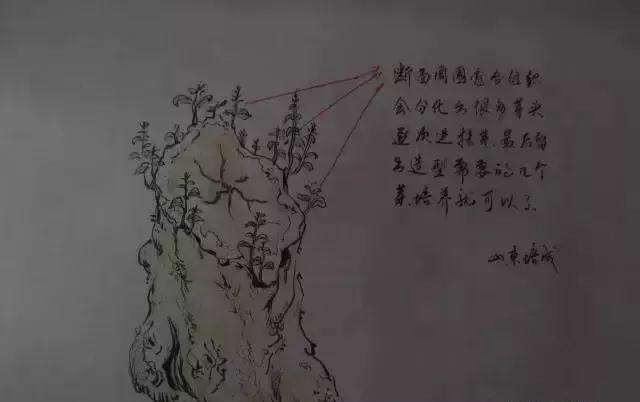 断面周围愈合组织
会分化出很多芽头
逐次进抹芽,最后留
出造型需要的几个
芽培养就可以了
山东培成